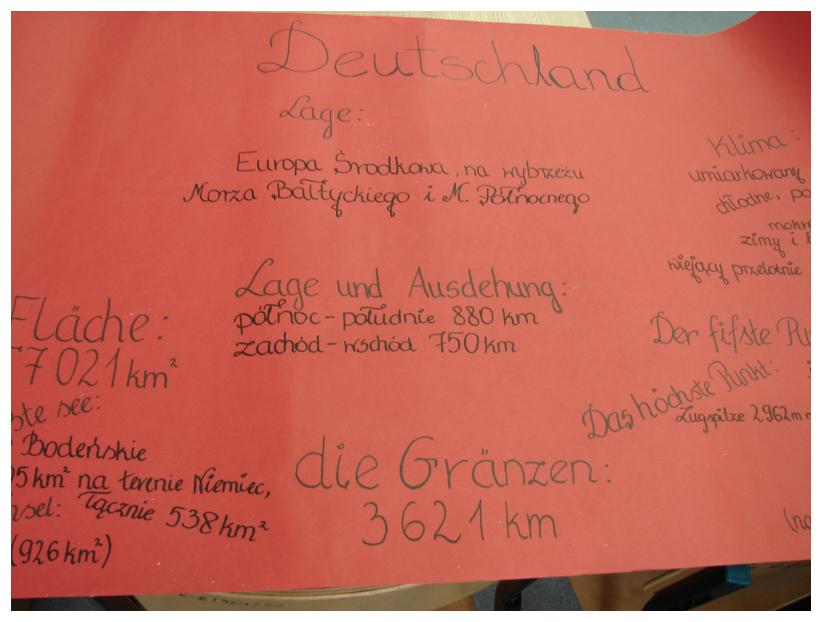 Deutschland
Lage:
Europa Środkowa, na wybrzeżu
Morza Bałtyckiego i M. Północnego
Klima:
umiarkowany
chłodne, po
mokre
zimy i
wiejący przelotnie
Lage und Ausdehung:
północ - południe 880 km
zachód - wschód 750 km
Fläche:
7 021 km²
ste see:
Bodeńskie
5 km² na terenie Niemiec,
nsel: łącznie 538 km²
(926 km²)
die Gränzen:
3 621 km
Der fifste Pu
Das höchste Punkt:
Zugspitze 2962 m n
(na